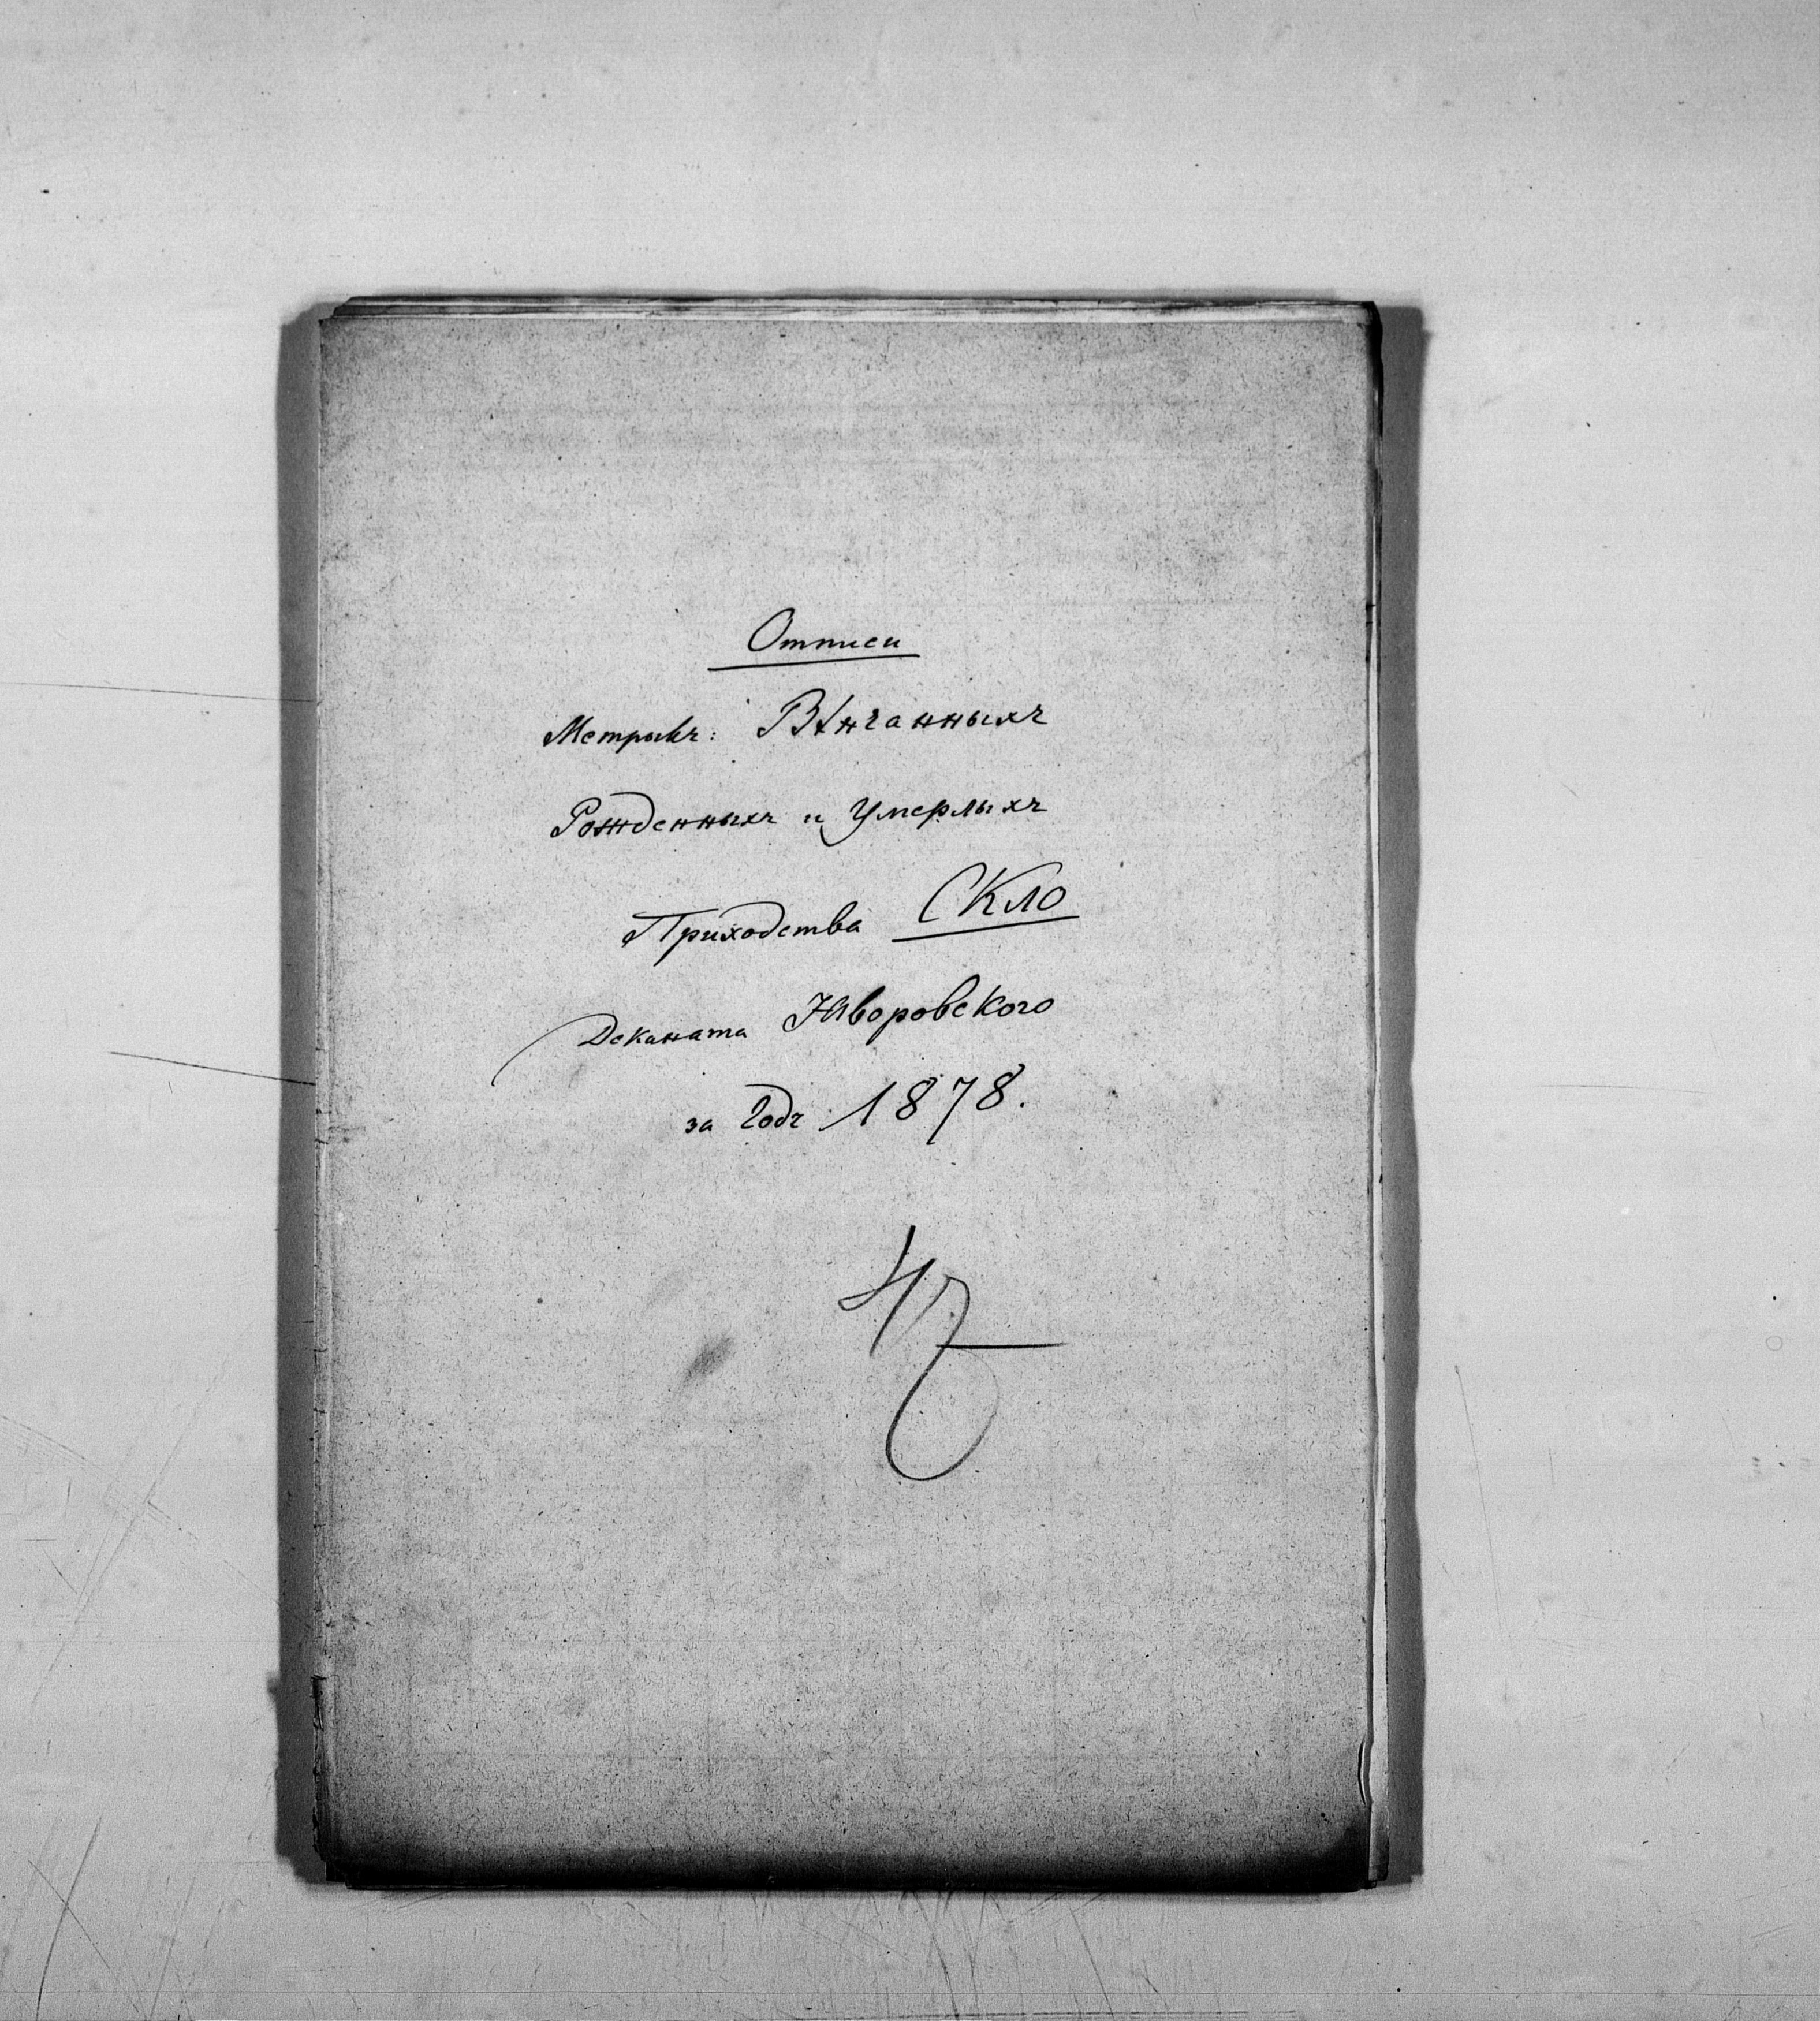 Отписи
Метрикъ: Вѣнчанныхъ
Рожденныхъ и Умерлыхъ
Приходства СКЛО
Деканата Яворовского
за годъ 1878.